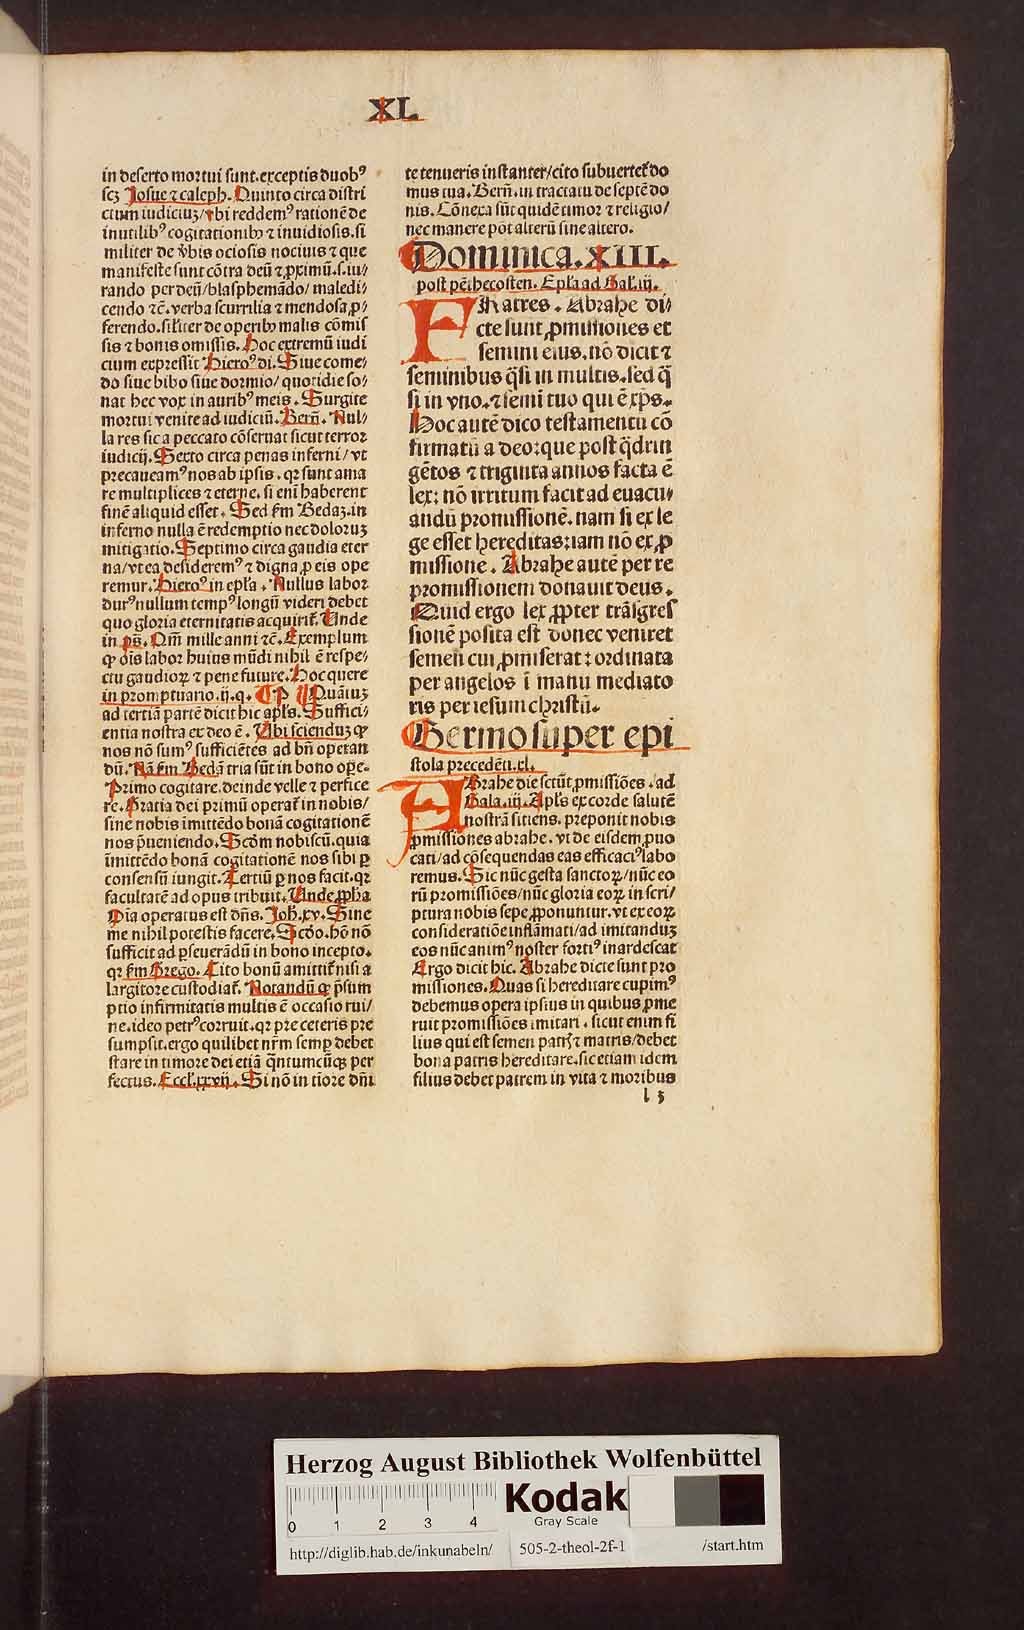 XL
in deserto mortui sunt. exceptis duobꝰ
scꝫ Josue ⁊ caleph. Quinto circa distri
ctum iudiciuꝫ/ vbi reddemꝰ rationē de
inutilibꝰ cogitationibꝰ ⁊ inuidiosis. si
militer de v̄bis ociosis nociuis ⁊ que
manifeste sunt cōtra deū ⁊ ꝓximū. s. iu/
rando per deū/ blasphemādo/ maledi/
cendo ⁊c̄. verba scurrilia ⁊ mendosa ꝓ/
ferendo. silr̄ter de operibꝰ malis cōmis
sis ⁊ bonis omissis. Hoc extremū iudi
cium expressit Hieroꝰ di. Siue come/
do siue bibo siue dormio/ quotidie so/
nat hec vox in auribꝰ meis. Surgite
mortui venite ad iudiciū. Bern̄. Nul/
la res sic a peccato cōseruat sicut terror
iudicij. Sexto circa penas inferni/ vt
precaueamꝰ nos ab ipsis. qꝛ sunt ama
re multiplices ⁊ eterne. si enī haberent
finē aliquid esset. Sed ẜm Bedaꝫ. in
inferno nulla ē redemptio nec doloruꝫ
mitigatio. Septimo circa gaudia eter
na/ vt ea desideremꝰ ⁊ digna ꝓ eis ope
remur. Hieroꝰ in epl̄a. Nullus labor
durꝰ nullum tempꝰ longū videri debet
quo gloria eternitatis acquirit̄. Unde
in ps̄. Qm̄ mille anni ⁊c̄. Exemplum
ꝙ oīs labor huius mūdi nihil ē respe/
ctu gaudioꝝ ⁊ pene future. Hoc quere
in promptuario. ij. q. ¶ P ¶ Quātuꝫ
ad tertiā partē dicit hic apl̄s. Suffici/
entia nostra ex deo ē. Ubi scienduꝫ ꝙ
nos nō sumꝰ sufficiētes ad bn̄ operan
dū. Nā ẜm Bedā tria sūt in bono ope.
Primo cogitare. deinde velle ⁊ perfice
re. Gratia dei primū operat̄ in nobis/
sine nobis īmittēdo bonā cogitationē
nos p̄ueniendo. Scd̄m nobiscū. quia
īmittēdo bonā cogitationē nos sibi ꝑ
consensū iungit. Tertiū ꝑ nos facit. qꝛ
facultatē ad opus tribuit. Unde ꝓpha
Oīa operatus est dn̄s. Joh̄. xv. Sine
me nihil potestis facere. Scd̄o. hō nō
sufficit ad ꝑseuerādū in bono incepto.
qꝛ ẜm Grego. Cito bonū amittit̄ nisi a
largitore custodiat̄. Notandū ꝙ p̄sum
ptio infirmitatis multis ē occasio rui/
ne. ideo petrꝰ corruit. qꝛ pre ceteris pre
sumpsit. ergo quilibet nr̄m semꝑ debet
stare in timore dei etiā q̄ntumcūqꝫ per
fectus. Eccl̄. xxvij. Si nō in tiōre dn̄i
te tenueris instanter/ cito subuertet̄ do
mus tua. Bern̄. in tractatu de septē do
nis. Cōnexa sūt quidē timor ⁊ religio/
nec manere pōt alterū sine altero.
Dominica. XIII.
post pēthecosten. Epl̄a ad Gal̄. iij.
FRatres. Abrahe di/
cte sunt ꝓmissiones et
semini eius. nō dicit ⁊
seminibus q̄si in multis. sed q̄
si in vno. ⁊ semī tuo qui ē xp̄s.
Hoc autē dico testamentū cō
firmatū a deo: que post q̄drin
gētos ⁊ triginta annos facta ē
lex: nō irritum facit ad euacu/
andū promissionē. nam si ex le
ge esset hereditas: iam nō ex ꝓ
missione. Abrahe autē per re
promissionem donauit deus.
Quid ergo lex ꝓpter trāsgres
sionē posita est donec veniret
semen cui ꝓmiserat: ordinata
per angelos ī manu mediato
ris per iesum christū.
Sermo super epi
stola precedēti. xl.
ABrahe dicte sūt ꝓmissiōes. ad
Gala. iij. Apl̄s ex corde salutē
nostrā sitiens. preponit nobis
ꝓmissiones abrahe. vt de eisdem ꝓuo
cati/ ad cōsequendas eas efficaciꝰ labo
remus. Sic nūc gesta sanctoꝝ/ nūc eo
rū promissiōes/ nūc gloria eoꝝ in scri/
ptura nobis sepe ꝓponuntur. vt ex eoꝝ
consideratiōe inflāmati/ ad imitanduꝫ
eos nūc animꝰ noster fortiꝰ inardescat
Ergo dicit hic. Abrahe dicte sunt pro
missiones. Quas si hereditare cupimꝰ
debemus opera ipsius in quibus ꝓme
ruit promissiōes imitari. sicut enim fi
lius qui est semen patris ⁊ matris/ debet
bona patris hereditare. sic etiam idem
filius debet patrem in vita ⁊ moribus
l 3
Herzog August Bibliothek Wolfenbüttel
0 1 2 3 4
Kodak
Gray Scale
http://diglib.hab.de/inkunabeln/ 505-2-theol-2f-1 /start.htm